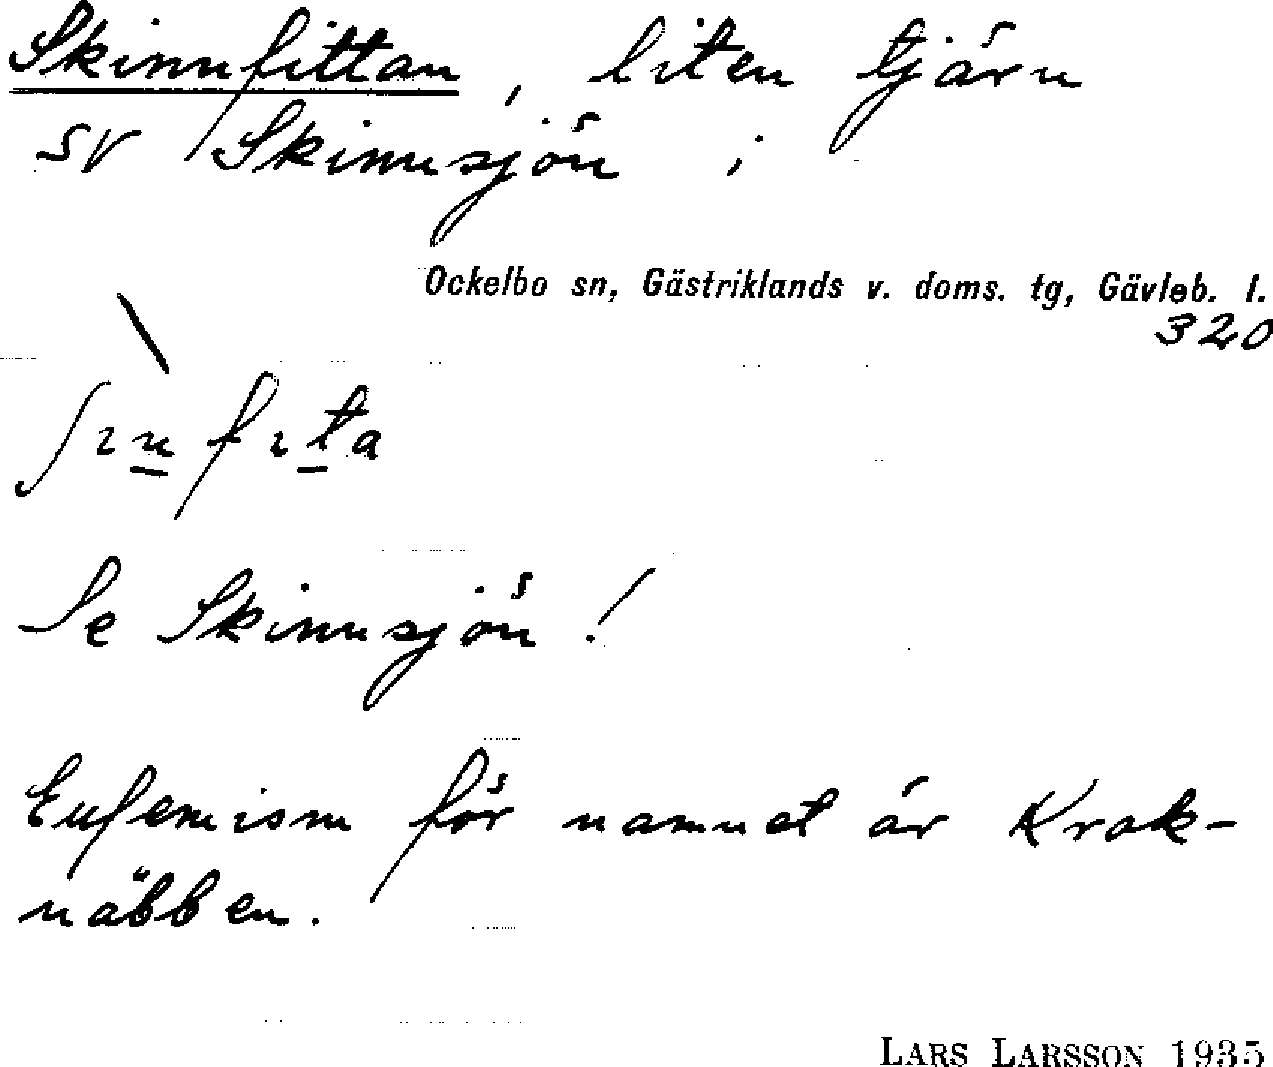 Skinnfittan, liten tjärn
SV Skinnsjön i
Ockelbo sn, Gästriklands v. doms. tg, Gävleb. l.
320
ʃın̲fıt̲a
Se Skinnsjön!
Eufemism för namnet är Krok-
näbben.
LARS LARSSON 1935